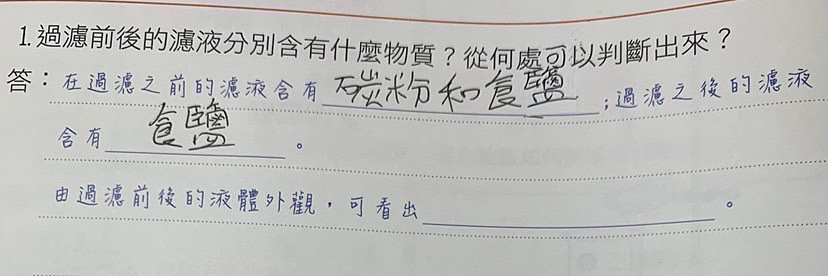 1.過濾前後的濾液分別含有什麼物質？從何處可以判斷出來？
答：在過濾之前的濾液含有碳粉和食鹽；過濾之後的濾液
含有食鹽。
由過濾前後的液體外觀，可看出。